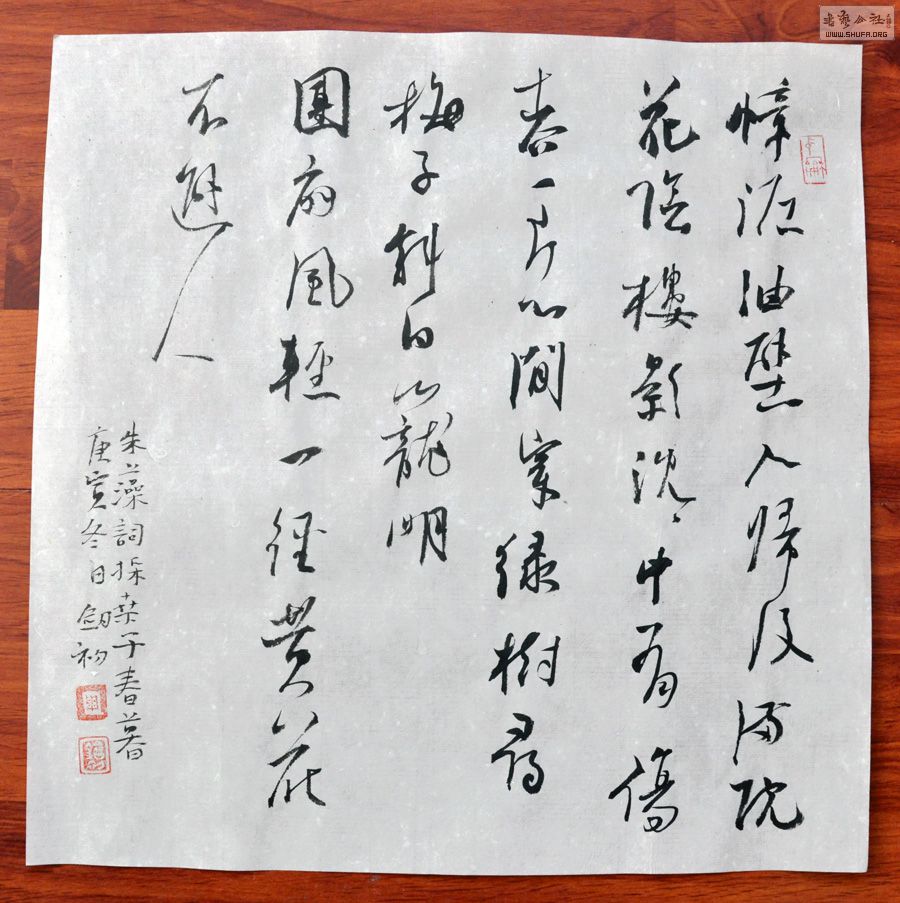 幛泥油壁人帰后满院
花陰樓影沈沈中有傷
春一片心閒穿緑樹尋
梅子斜日籠明
團扇風輕一徑黄花
不避人
朱藻詞採桑子春暮
庚寅冬日劍初
書藝公社
WWW.SHUFA.ORG